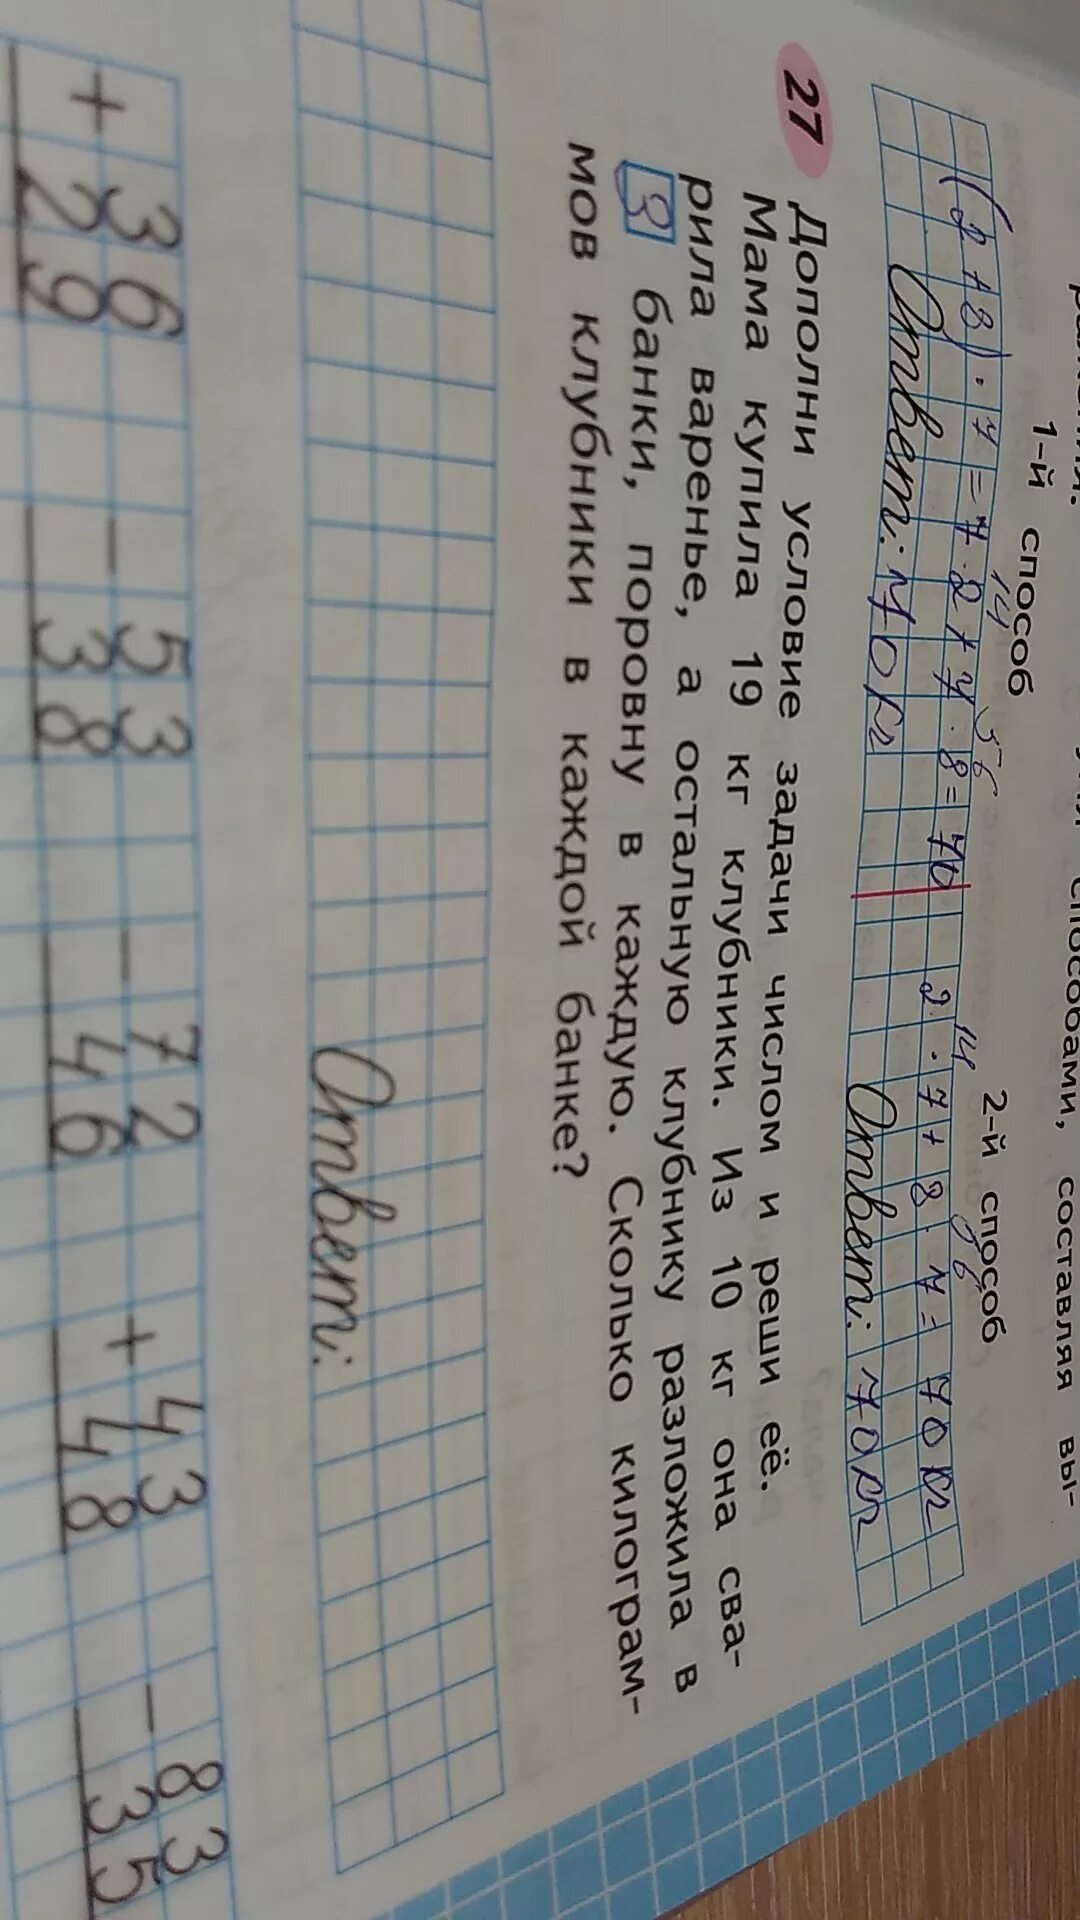 способами, составляя вы-
1-й способ 2-й способ
14 56 14 56
(2+8)·7=7·2+7·8=70 2·7+8·7=70 кг
Ответ: 70 кг Ответ: 70 кг
27 Дополни условие задачи числом и реши её.
Мама купила 19 кг клубники. Из 10 кг она сва-
рила варенье, а остальную клубнику разложила в
3 банки, поровну в каждую. Сколько килограм-
мов клубники в каждой банке?
Ответ:
+ 36 - 53 - 72 + 43 - 83
29 38 46 48 35